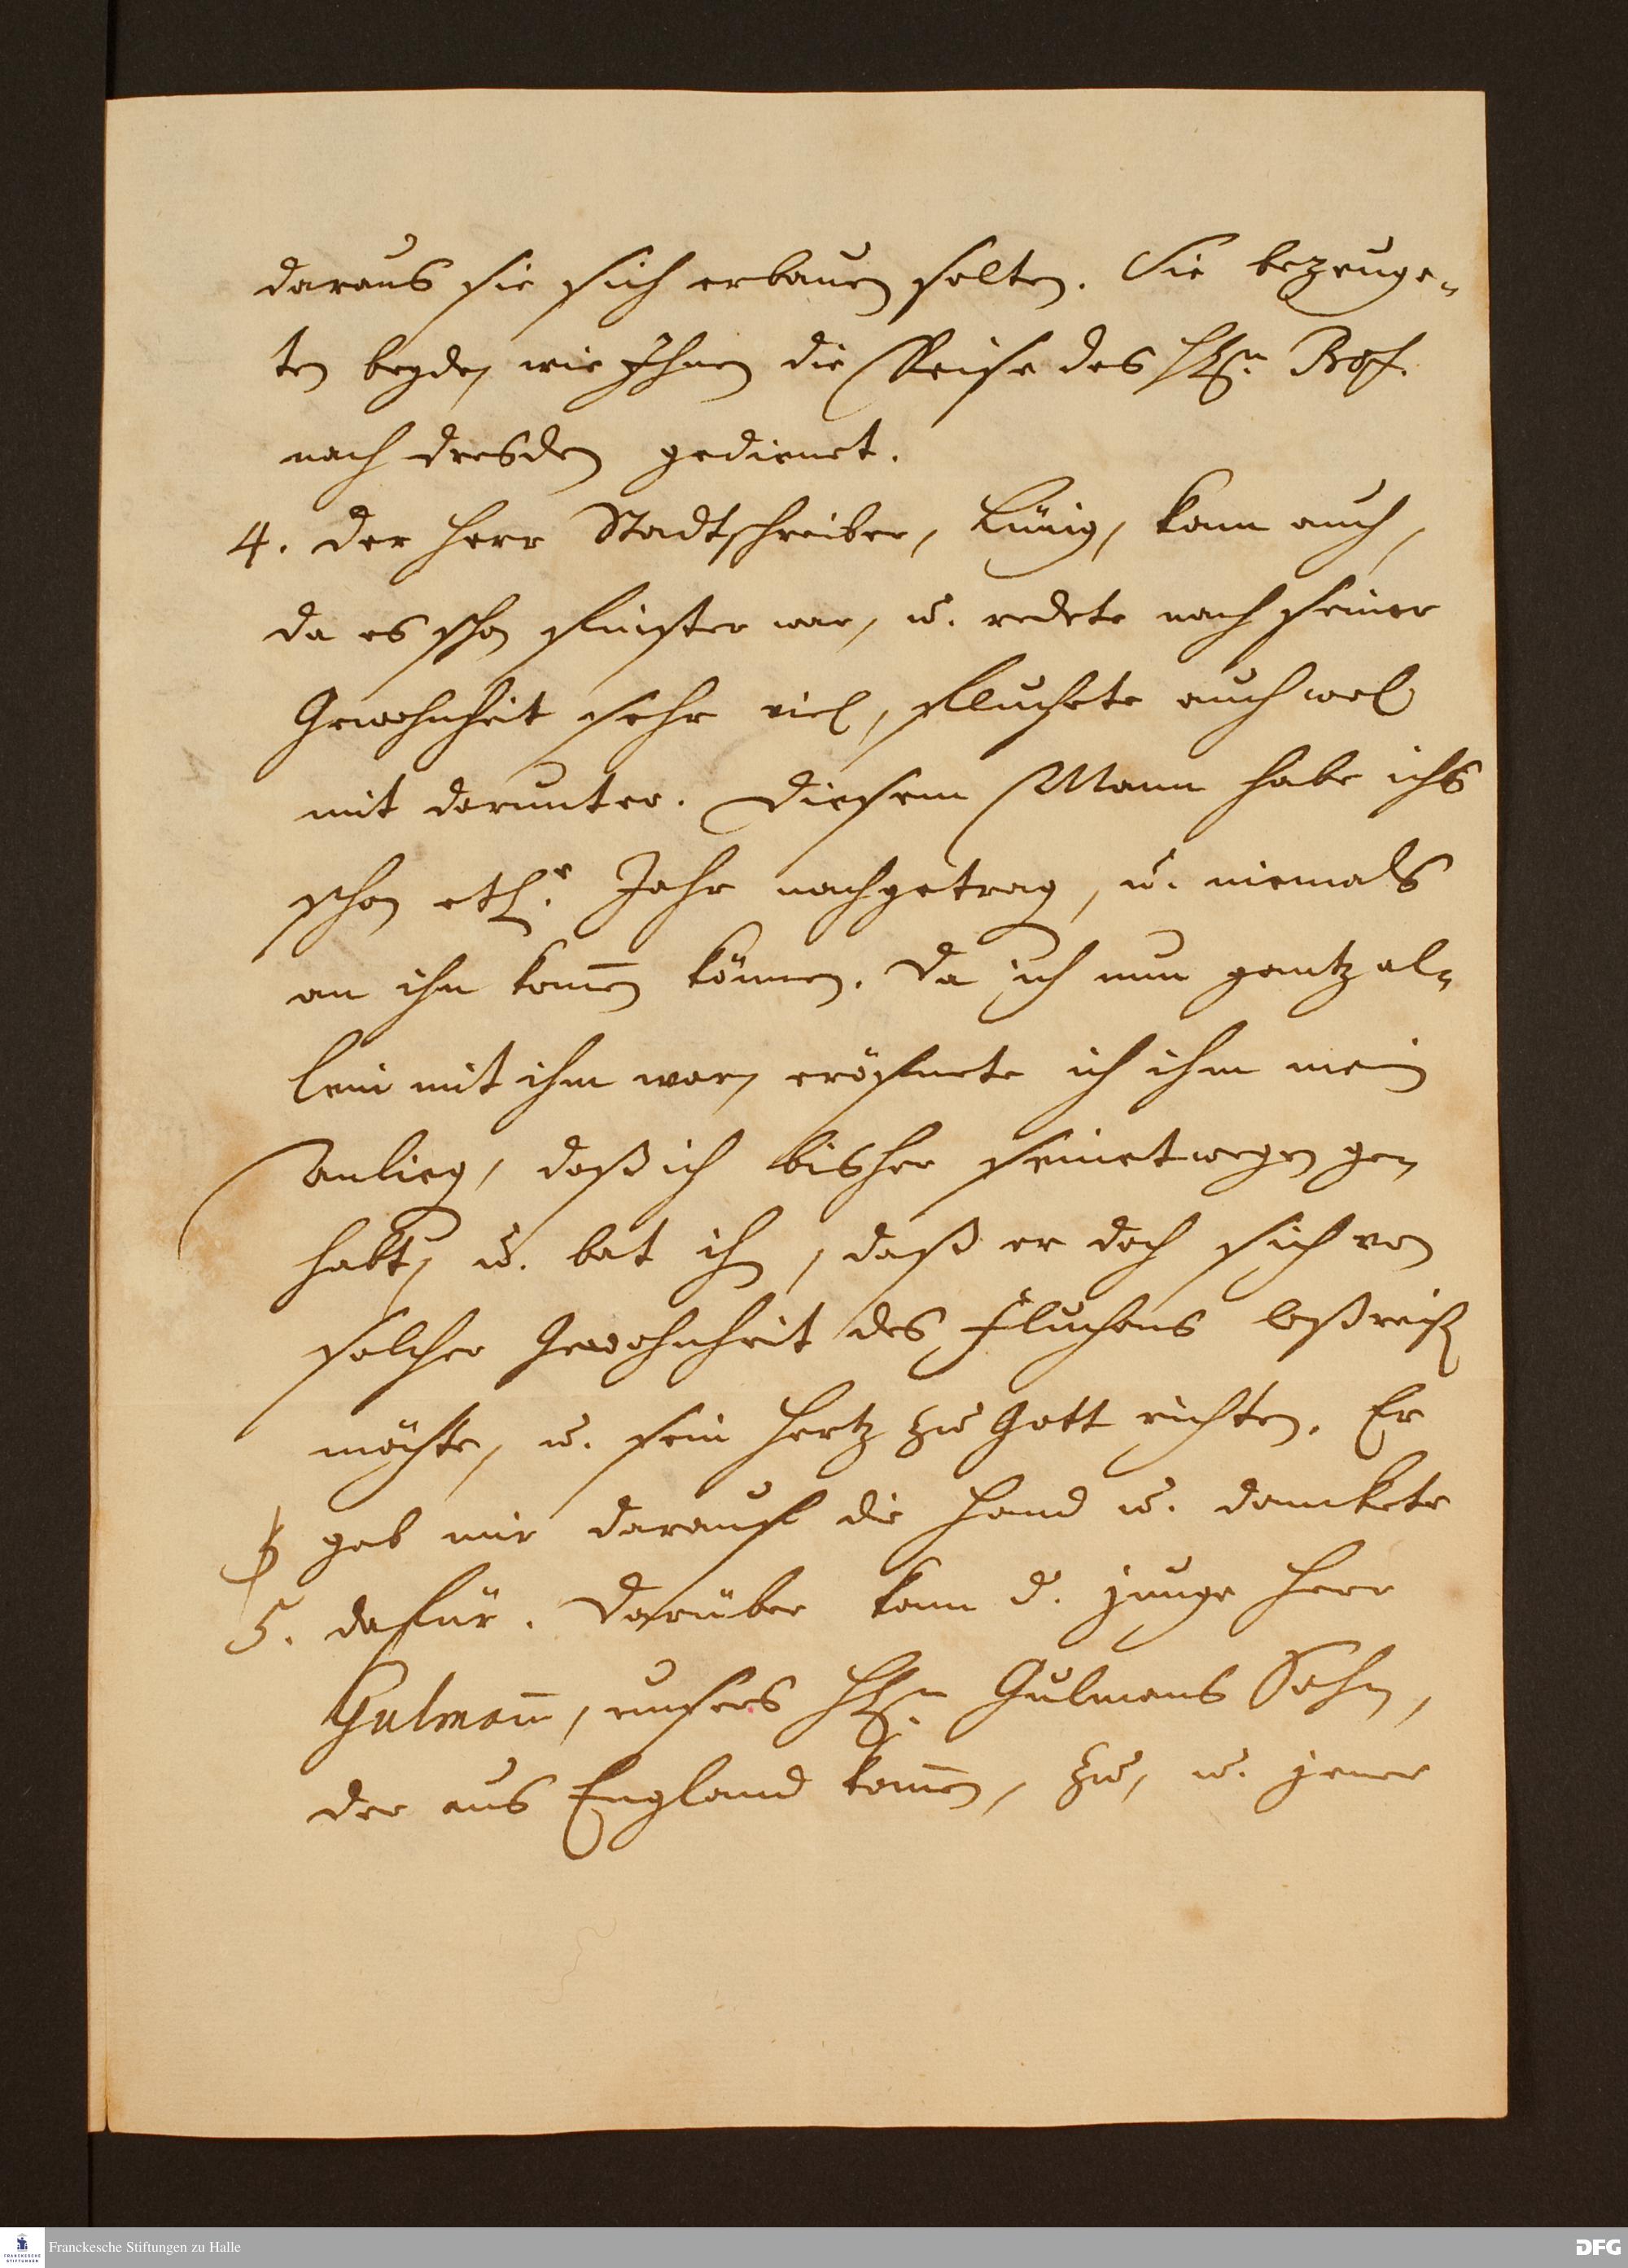 daraus sie sich erbauen solten. Sie bezeuge-
ten beyde, wie Ihnen die Reise des HErn Prof.
nach Dresden gedienet.
4. Der Herr Stadtschreiber, Lünig, kam auch,
da es schon finster war, u. redete nach seiner
Gewohnheit sehr viel, fluchete auch wol
mit darunter. Diesem Mann habe ichs
schon etl. Jahr nachgetragen, u. niemals
an ihn kom̄en können. Da ich nun gantz al-
lein mit ihm war, eröfnete ich ihm mein
Anliegen, daß ich bisher seinetwegen ge-
habt, u. bat ihn, daß er doch sich von
solcher Gewohnheit des Fluchens loßreißen
möchte, u. sein Hertz zu Gott richten. Er
gab mir darauf die Hand u. danckete
5. dafür. Darüber kam d. junge Herr
Gulmañ, unsers HErn Gulmans Sohn,
der aus England kom̄en, zu, u. jener
Franckesche Stiftungen zu Halle
DFG